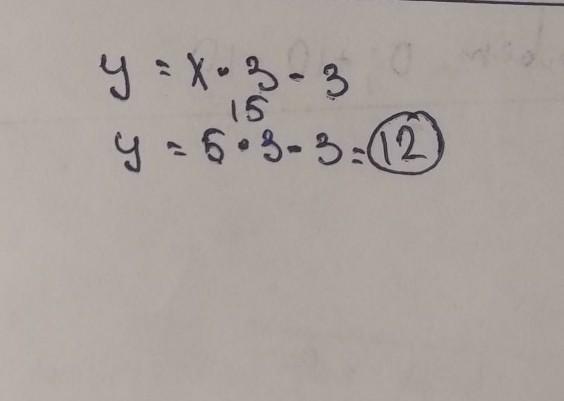 y = x · 3 - 3
15
y = 5 · 3 - 3 = 12